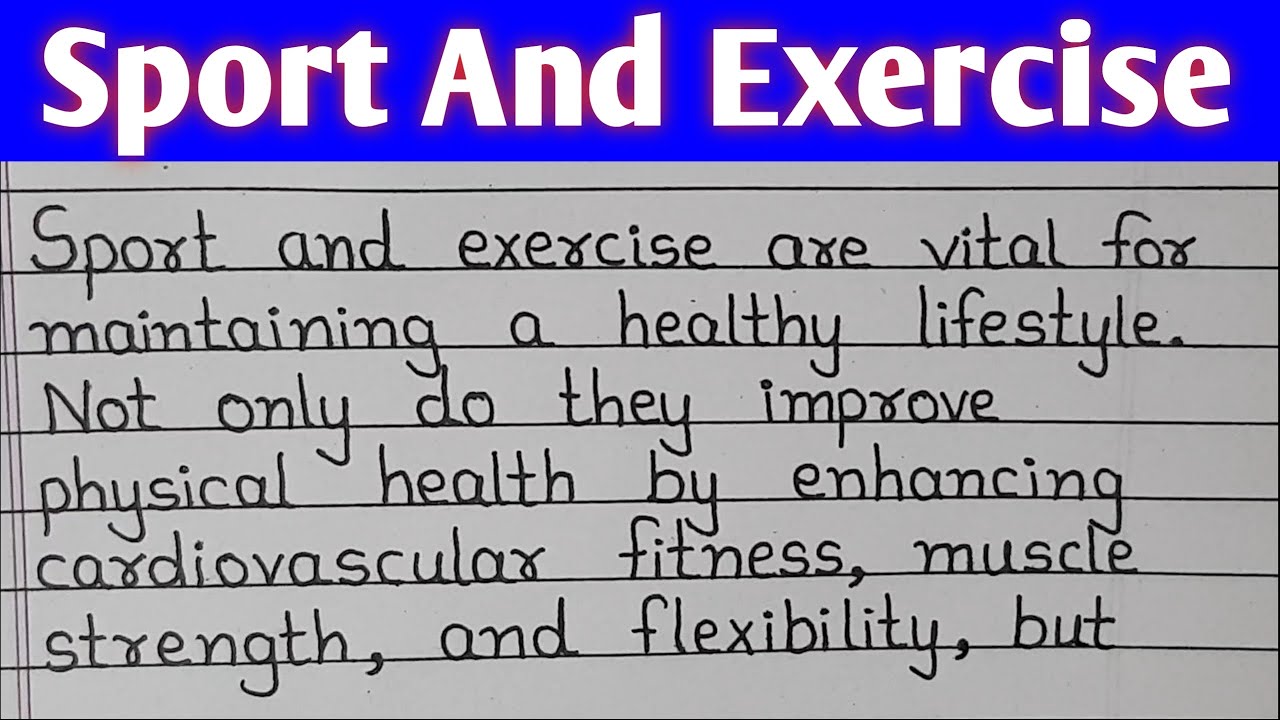 Sport And Exercise
Sport and exercise are vital for
maintaining a healthy lifestyle.
Not only do they improve
physical health by enhancing
cardiovascular fitness, muscle
strength, and flexibility, but